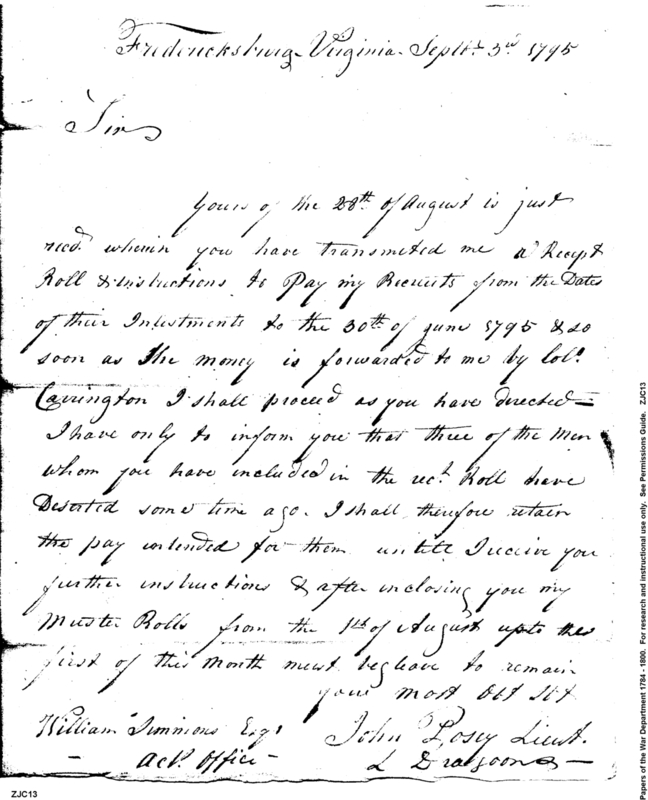 Fredericksburg Virginia Septbr 3rd 1795
Sir
Yours of the 28th of August is just
recd. wherein you have transmeted me a Recept
Roll & Instructions to Pay my Recruits from the Dates
of their Inlestments to the 30th of June 1795 & so
soon as the money is forwarded to me by Colo.
Carrington I shall proceed as you have directed
I have only to inform you that three of the Men
whom you have included in the rect. Roll have
Deserted some time ago. I shall therefore retain
the pay intended for them untile I receive you
further instructions & after inclosing you my
Muster Rolls from the 1st of August upto the
first of this Month must beg leave to remain
your most Obt Sct
William Simmons Esqr
John Posey Lieut.
Act. Office
L Dragoons
ZJC13
Papers of the War Department 1784 - 1800. For research and instructional use only. See Permissions Guide. ZJC13